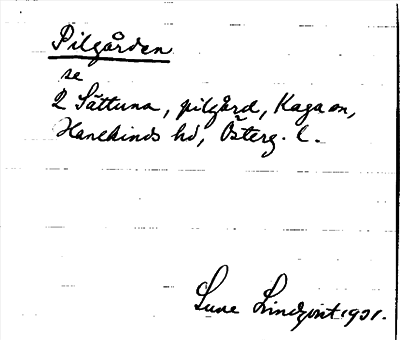 Pilgården
se
2 Sättuna, pilgård, Kaga sn,
Hanekinds hd, Österg. l.
Sune Lindqvist 1931.